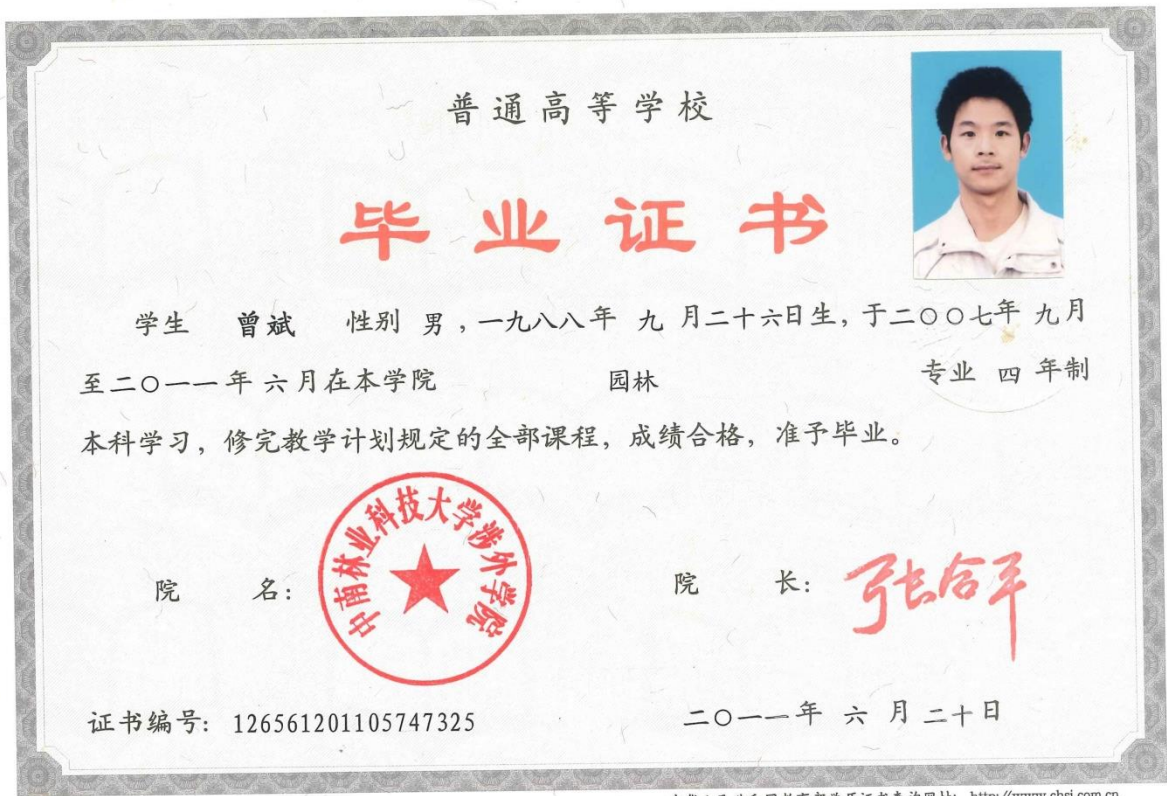 普通高等学校
毕业证书
学生 曾斌 性别 男，一九八八年 九 月二十六日生，于二〇〇七年 九月
至二〇一一年 六月在本学院 园林 专业 四 年制
本科学习，修完教学计划规定的全部课程，成绩合格，准予毕业。
中南林业科技大学涉外学院
院 名： 院 长： 张合平
证书编号：126561201105747325 二〇一一年 六 月 二十日
http://www.chsi.com.cn